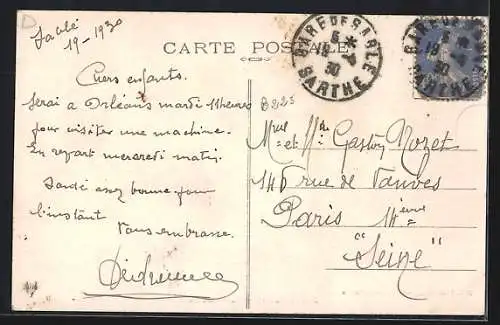 Sablé
19-1930
CARTE POSTALE
GARE DE SABLE
SARTHE
5
19
30
Chers enfants.
Serai à Orléans mardi 11 heures
pour visiter une machine.
En repart mercredi matin.
Santé assez bonne pour
l'instant
Vous embrasse.
B 225
Mme et Mr Gaston Nozet
146 rue de Vanves
Paris 14ème
"Seine"